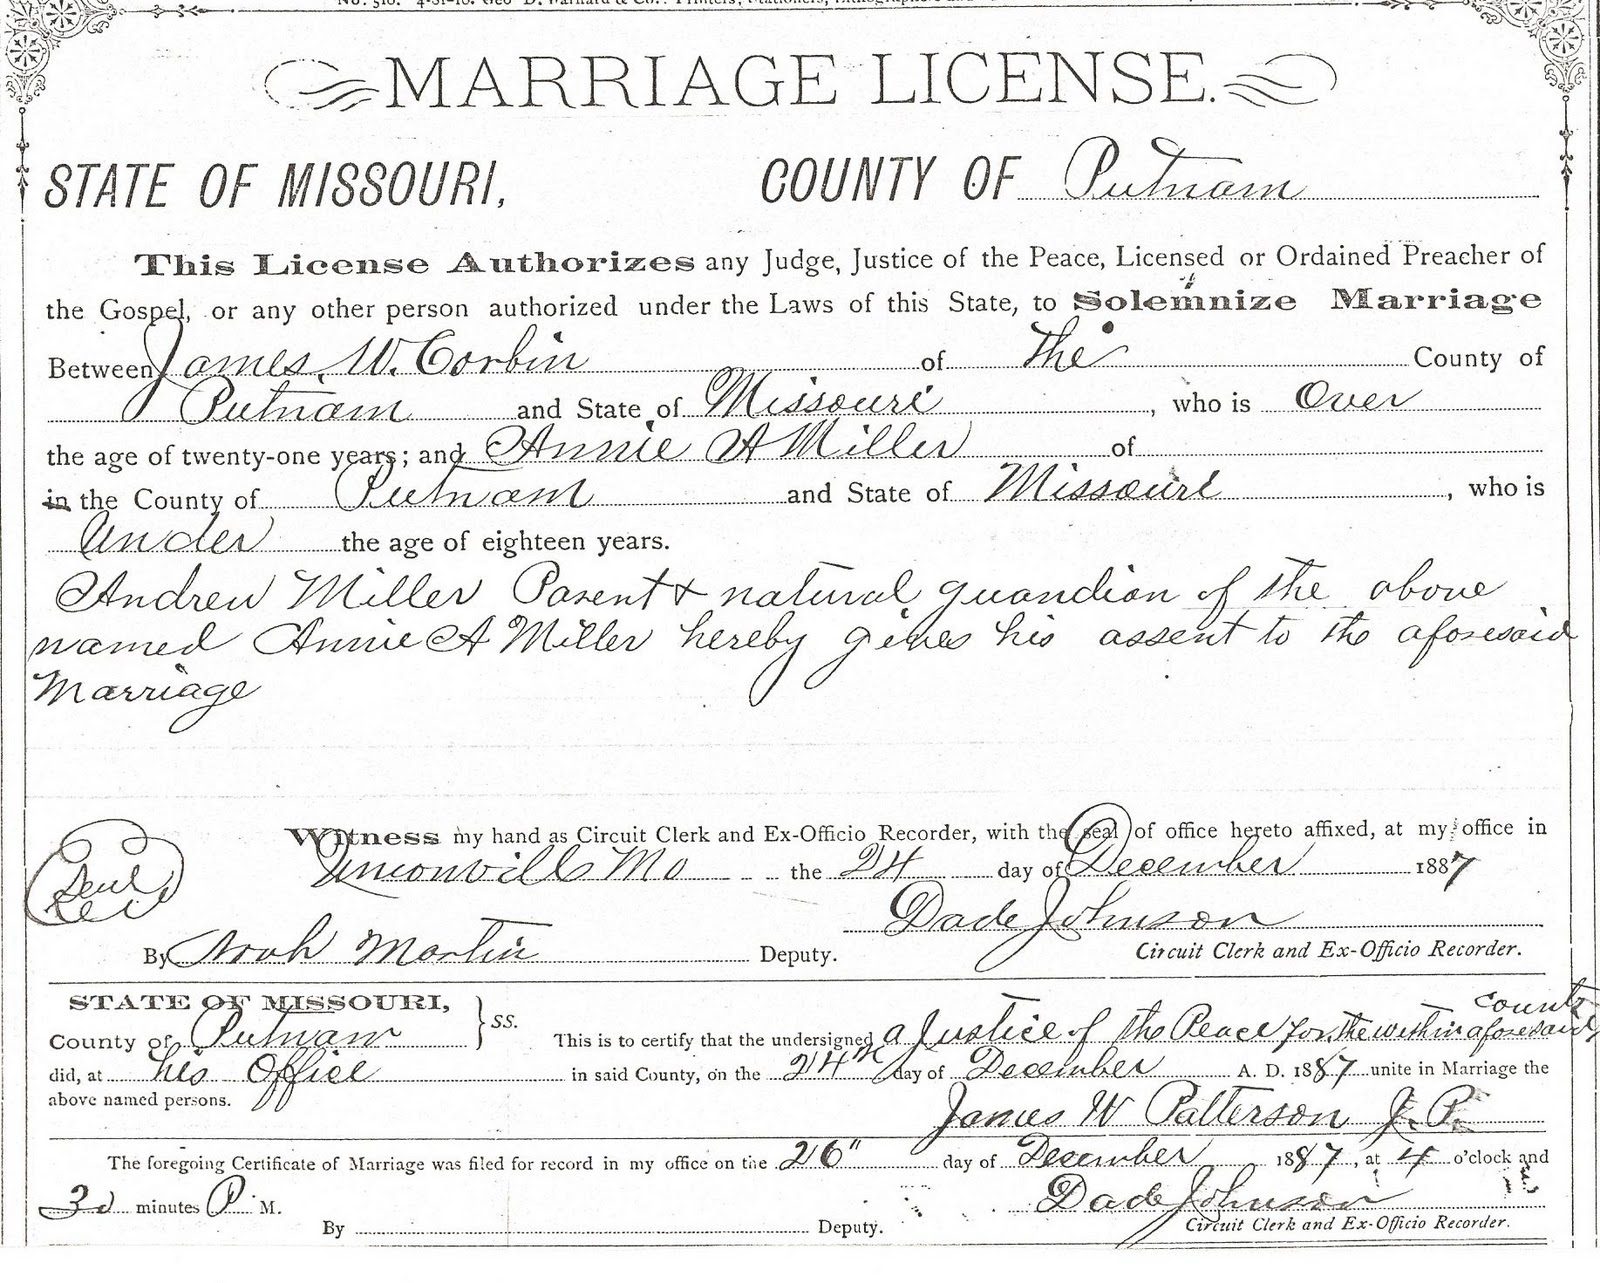 MARRIAGE LICENSE.
STATE OF MISSOURI, COUNTY OF Putnam
This License Authorizes any Judge, Justice of the Peace, Licensed or Ordained Preacher of
the Gospel, or any other person authorized under the Laws of this State, to Solemnize Marriage
Between James. W. Corbin of the County of
Putnam and State of Missouri, who is Over
the age of twenty-one years; and Annie A Miller of
in the County of Putnam and State of Missouri, who is
Under the age of eighteen years.
Andrew Miller Parent & natural guardian of the above
named Annie A Miller hereby gives his assent to the aforesaid
Marriage
Witness my hand as Circuit Clerk and Ex-Officio Recorder, with the seal of office hereto affixed, at my office in
Unionville Mo the 24 day of December 1887
Seal
Dade Johnson
By Noah Martin Deputy. Circuit Clerk and Ex-Officio Recorder.
STATE OF MISSOURI,
County of Putnam } ss. This is to certify that the undersigned a Justice of the Peace for the within county aforesaid
did, at his office in said County, on the 24th day of December A. D. 1887 unite in Marriage the
above named persons.
James W Patterson J. P.
The foregoing Certificate of Marriage was filed for record in my office on the 26" day of December 1887, at 4 o'clock and
30 minutes P. M. Dade Johnson
By Deputy. Circuit Clerk and Ex-Officio Recorder.